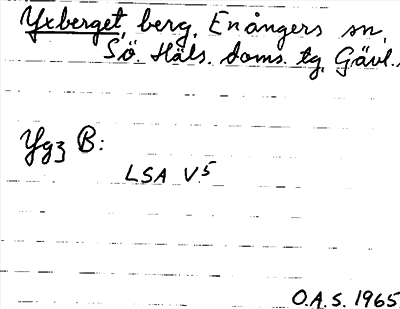 Yxberget, berg, Enångers sn,
S.ö. Häls. doms. tg, Gävl.
Ygz B:
LSA V.5
O.A.S. 1965